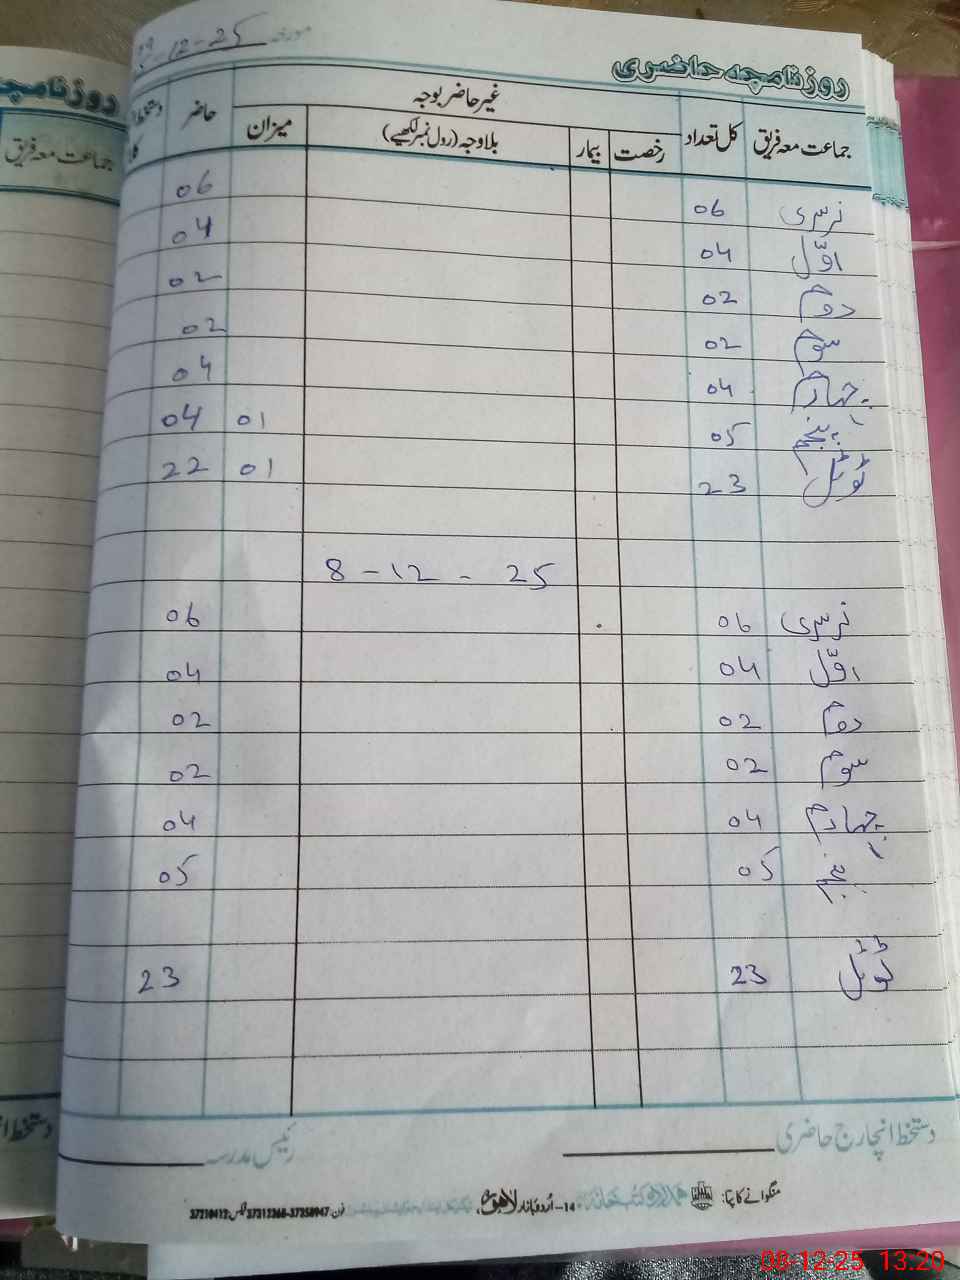 روزنامچہ حاضری
مورخہ -12-25
جماعت معہ فریق کل تعداد غیر حاضر بوجہ حاضر
رخصت بیمار بلاوجہ (رول نمبر لکھیے) میزان
نرسری 06 06
اوّل 04 04
دوم 02 02
سوم 02 02
چہارم 04 04
پنجم 05 01 04
ٹوٹل 23 01 22
8-12-25
نرسری 06 06
اوّل 04 04
دوم 02 02
سوم 02 02
چہارم 04 04
پنجم 05 05
ٹوٹل 23 23
دستخط انچارج حاضری
رئیس مدرسہ
منگوانے کا پتا: 14-اُردو بازار لاہور،
فون 37358947-37312368 فیکس: 37210412
روزنامچہ
جماعت معہ فریق
08-12-25 13:20